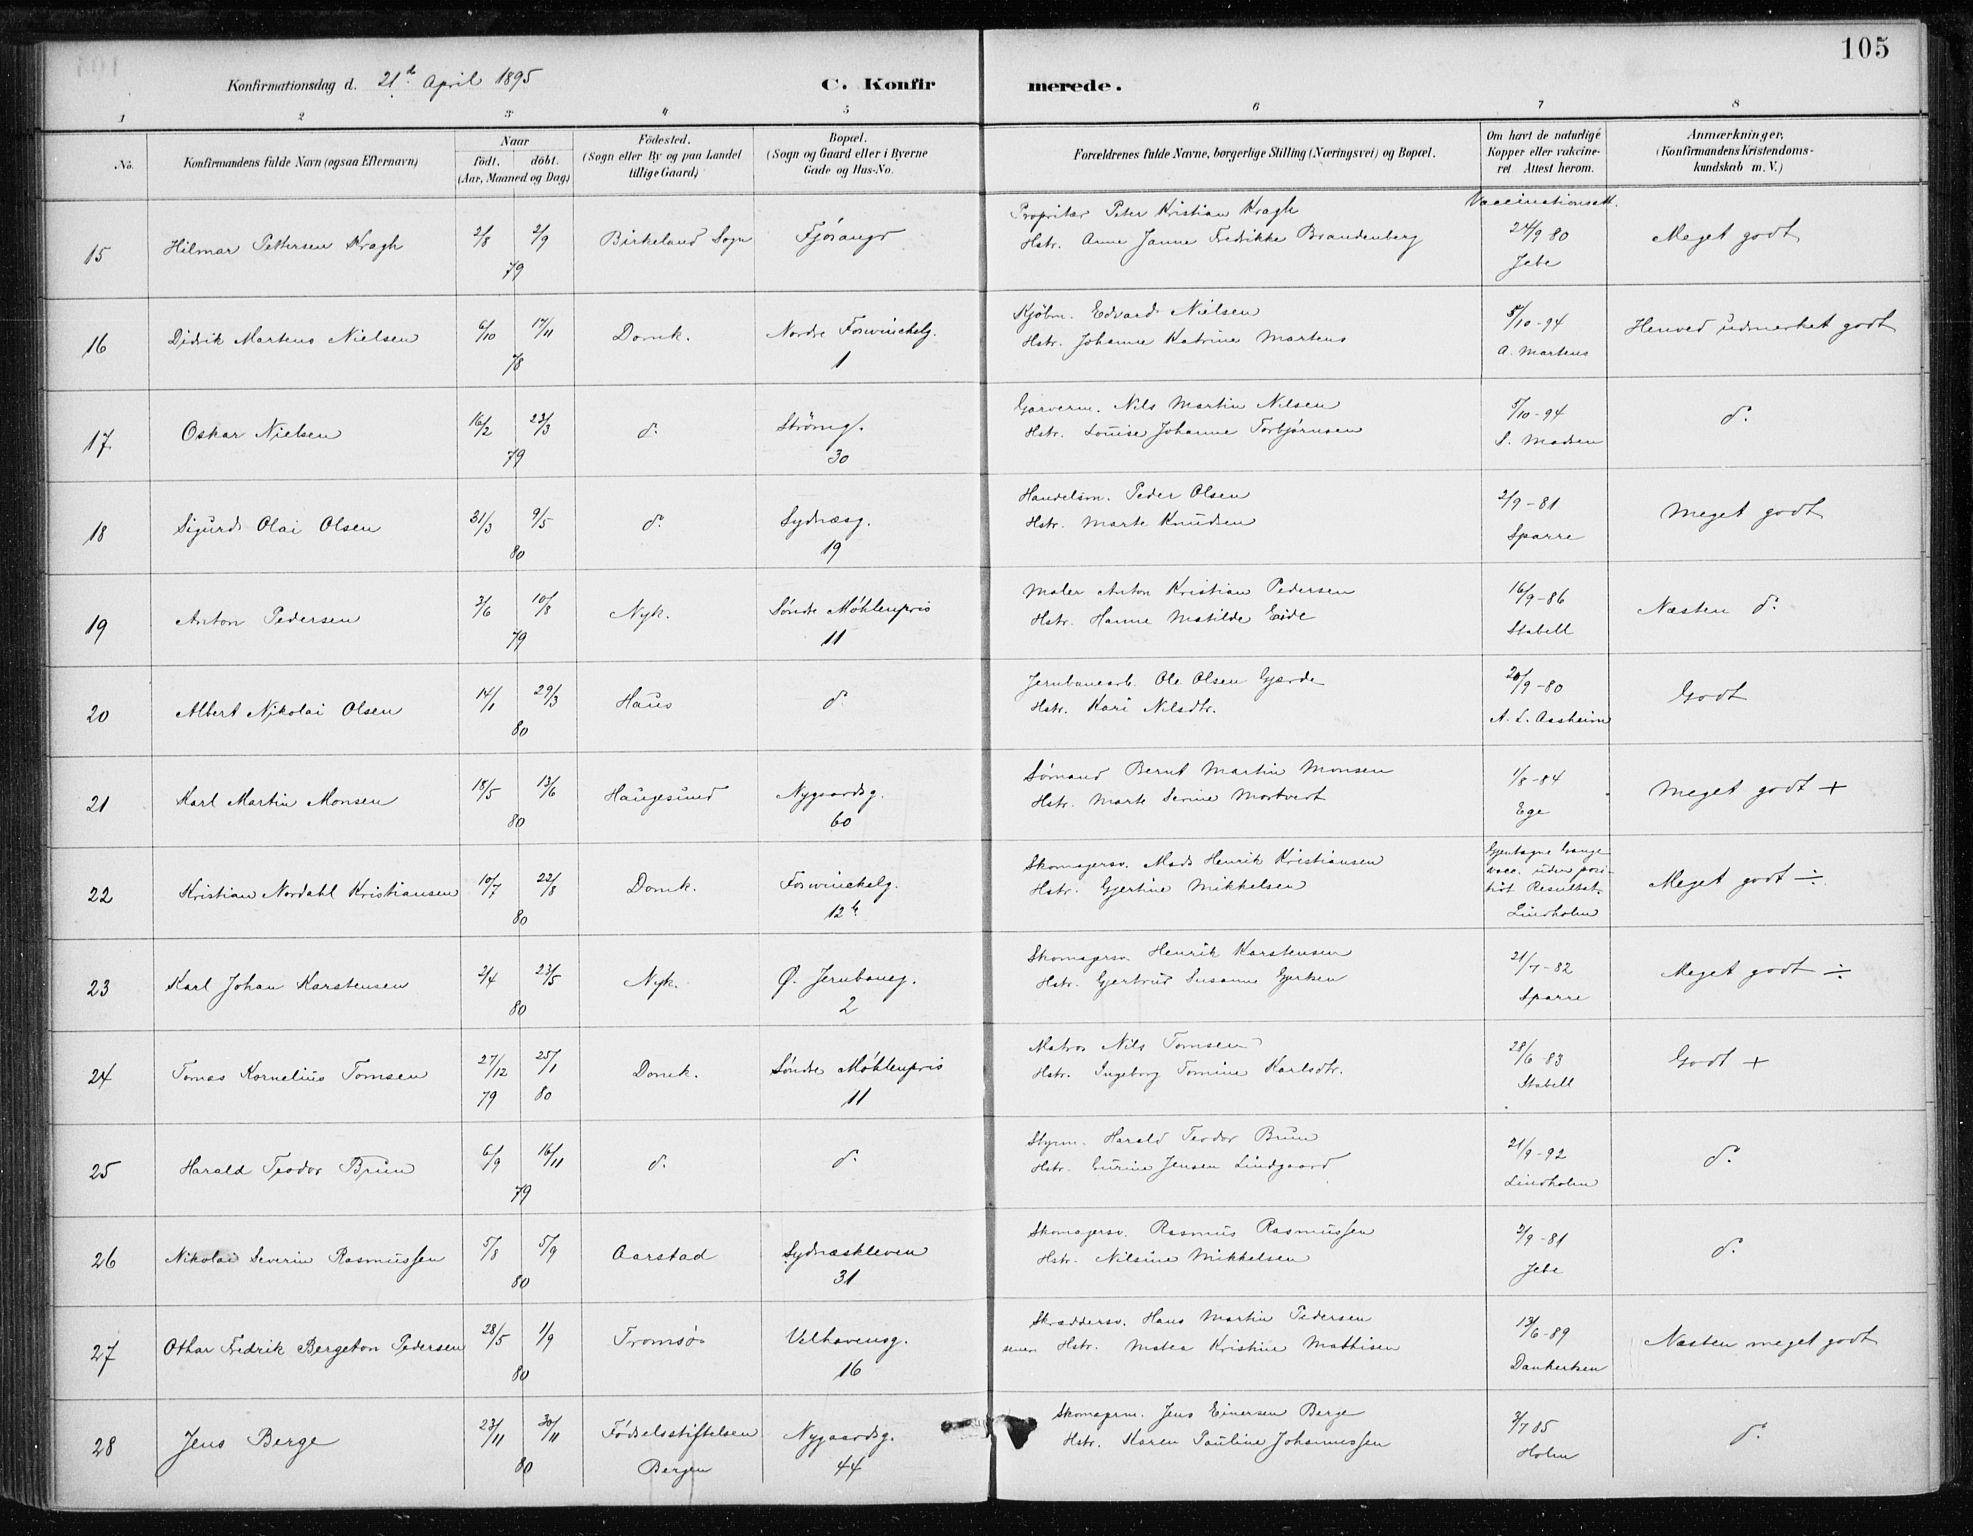 105
Konfirmationsdag d. 21de April 1895
C. Konfirmerede.
1 2 3 4 5 6 7 8
No.
Konfirmandens fulde Navn (ogsaa Efternavn)
Naar
födt. döbt.
(Aar, Maaned og Dag)
Födested.
(Sogn eller By og paa Landet
tillige Gaard)
Bopæl.
(Sogn og Gaard eller i Byerne
Gade og Hus-No.
Forældrenes fulde Navne, borgerlige Stilling (Næringsvei) og Bopæl.
Om havt de naturlige
Kopper eller vakcine-
ret Attest herom.
Anmærkninger,
(Konfirmandens Kristendoms-
kundskab m. V.)
Vaccinationsatt.
15 Hilmar Pettersen Kragh 2/8 2/9 79 Birkeland Sogn Fjøsanger
Propritær Peter Kristian Kragh
Hstr. Anne Janne Fredrikke Brandenberg
24/9 80
Jebe
Meget godt
16 Didrik Martens Nielsen 6/10 17/11 78 Domk. Nordre Foswinckelg. 1
Kjöbm. Edvard Nielsen
Hstr. Johanne Katrine Martens
5/10-94
A. Martens
Henved udmerket godt
17 Oskar Nielsen 16/2 23/3 79 d. Strömg. 30
Garverm. Nils Martin Nilsen
Hstr. Louise Johanne Torbjørnsen
5/10-94
S. Madsen
d.
18 Sigurd Olai Olsen 31/3 9/5 80 d. Sydnæsg. 19
Handelsm. Peder Olsen
Hstr. Marte Knudsen
2/9-81
Sparre
Meget godt
19 Anton Pedersen 3/6 10/8 79 Nyk. Söndre Möhlenpris 11
Maler Anton Kristian Pedersen
Hstr. Hanne Matilde Eide
16/9-86
Stabell
Næsten d.
20 Albert Nikolai Olsen 14/1 29/3 80 Haus d.
Jernbanearb. Ole Olsen Gjerde
Hstr. Kari Nilsdtr.
20/9-80
A. L. Aasheim
Godt
21 Karl Martin Monsen 18/5 13/6 80 Haugesund Nygaardsg. 60
Sömand Bernt Martin Monsen
Hstr. Marte Serine Mortveit
1/8-84
Ege
Meget godt +
22 Kristian Nordahl Kristiansen 10/7 22/8 80 Domk. Foswinckelg. 12b
Skomagersv. Mads Henrik Kristiansen
Hstr. Gjertine Mikkelsen
Gjentagne Gange
vacc. uden posi-
tivt Resultat.
Lindholm
Meget godt ÷
23 Karl Johan Karstensen 2/4 23/5 80 Nyk. Ø. Jernbaneg. 2
Skomagersv. Henrik Karstensen
Hstr. Gjertrud Susanne Gjertsen
21/7-82
Sparre
Meget godt ÷
24 Tomas Kornelius Tomsen 27/12 79 25/1 80 Domk. Söndre Möhlenpris 11
Matros Nils Tomsen
Hstr. Ingeborg Tomine Karlsdtr.
28/6-83
Stabell
Godt +
25 Harald Teodor Brun 6/9 16/11 79 d. d.
Styrm. Harald Teodor Brun
Hstr. Jensen Lindgaard
21/9-92
Lindholm
d.
26 Nikolai Severin Rasmussen 5/8 5/9 80 Aarstad Sydnæskleven 31
Skomagersv. Rasmus Rasmussen
Hstr. Nilsine Mikkelsen
2/9-81
Jebe
d.
27 Othar Fredrik Bergeton Pedersen 28/5 1/9 80 Tromsö Velhavensg. 16
Skræddersv. Hans Martin Pedersen
Hstr. Matea Kristine Mathisen
13/6-89
Dankertsen
Næsten meget godt
28 Jens Berge 23/11 30/11 80 Födselsstiftelsen Bergen Nygaardsg. 44
Skomagerm. Jens Einersen Berge
Hstr. Karen Pauline Johannessen
3/7 85
Holm
d.